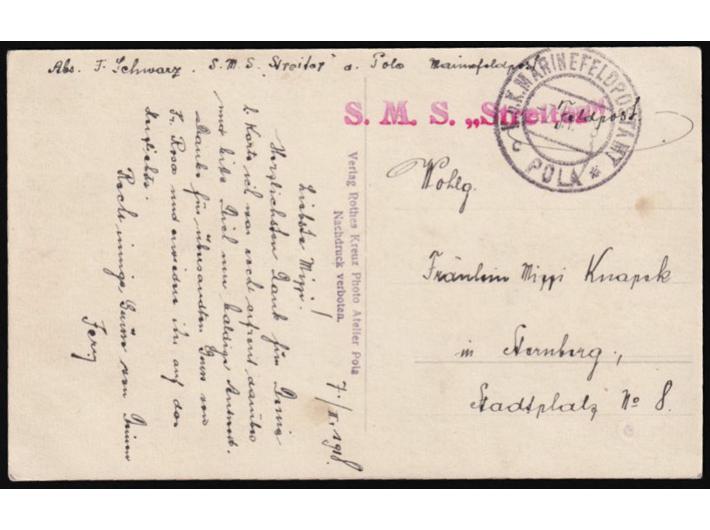 Abs. F. Schwarz. S.M.S. "Streiter" a. Pola Marinefeldpost
S. M. S. „Streiter"
K.U.K. MARINEFELDPOSTAMT
POLA
c
Feldpost.
Wohlg.
Fräulein Mizzi Knapek
in Sternberg,
Stadtplatz No 8.
Verlag Rothes Kreuz Photo Atelier Pola
Nachdruck verboten.
7./II. 1918.
Liebste Mizzi!
Herzlichsten Dank für Deine
l. Karte ich war sehr erfreut darüber
und bitte Dich um baldige Antwort.
Danke für übersandten Gruss von
Fr. Rosa und erwidere ihr auf das
herzlichste.
Recht innige Grüsse von Deinem
Ferry